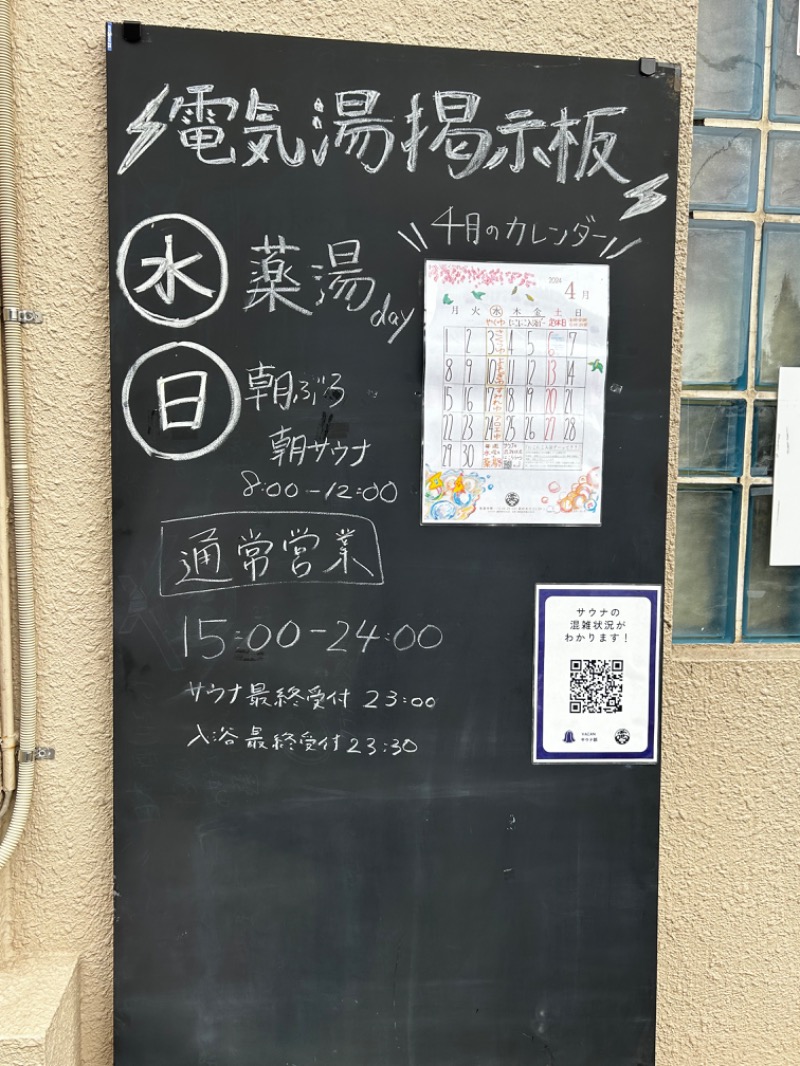 電気湯掲示板
水 薬湯day
日 朝ぶろ
朝サウナ
8:00-12:00
通常営業
15:00-24:00
サウナ最終受付 23:00
入浴最終受付 23:30
4月のカレンダー
2024 4月
月 火 水 木 金 土 日
1 2 3 4 5 6 7
8 9 10 11 12 13 14
15 16 17 18 19 20 21
22 23 24 25 26 27 28
29 30
サウナの
混雑状況が
わかります！